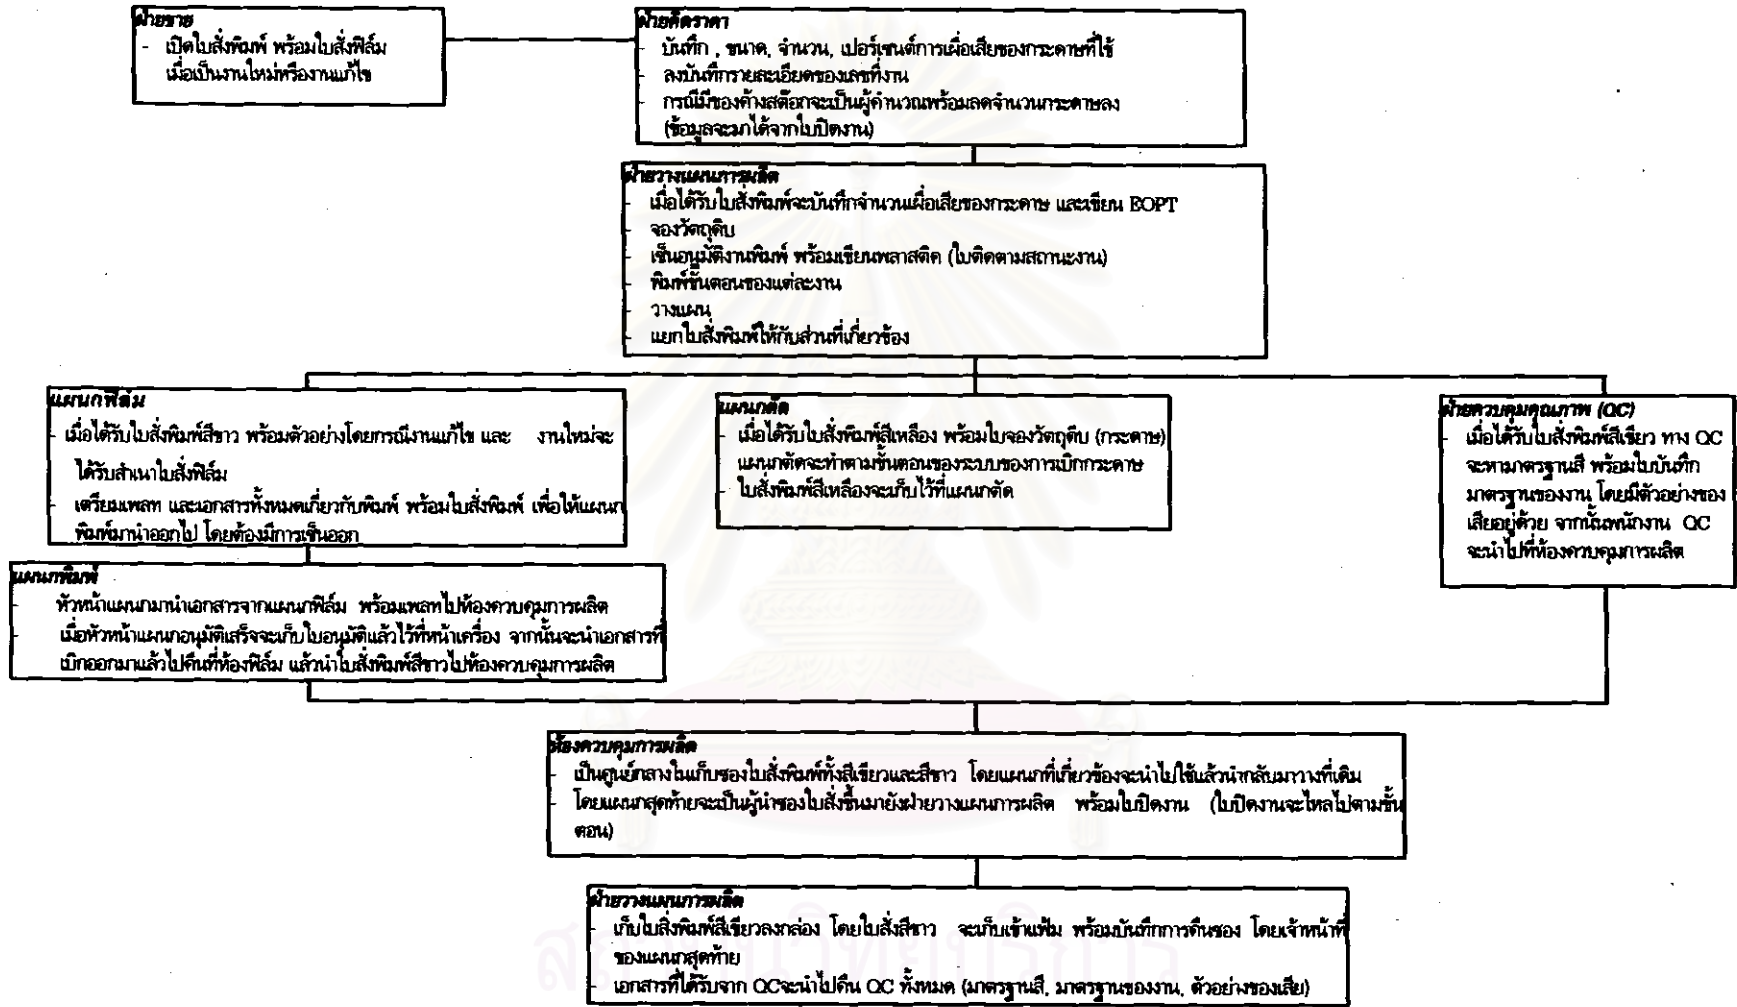 ฝ่ายขาย
- เปิดใบสั่งพิมพ์ พร้อมใบสั่งฟิล์ม
เมื่อเป็นงานใหม่หรืองานแก้ไข
ฝ่ายคิดราคา
- บันทึก , ขนาด, จำนวน, เปอร์เซนต์การเผื่อเสียของกระดาษที่ใช้
- ลงบันทึกรายละเอียดของเลขที่งาน
- กรณีมีของค้างสต๊อกจะเป็นผู้คำนวณพร้อมลดจำนวนกระดาษลง
(ข้อมูลจะมาได้จากใบปิดงาน)
ฝ่ายวางแผนการผลิต
- เมื่อได้รับใบสั่งพิมพ์จะบันทึกจำนวนเผื่อเสียของกระดาษ และเขียน EOPT
- จองวัตถุดิบ
- เซ็นอนุมัติงานพิมพ์ พร้อมเขียนพลาสติค (ใบติดตามสถานะงาน)
- พิมพ์ขั้นตอนของแต่ละงาน
- วางแผน
- แยกใบสั่งพิมพ์ให้กับส่วนที่เกี่ยวข้อง
แผนกฟิล์ม
- เมื่อได้รับใบสั่งพิมพ์สีขาว พร้อมตัวอย่างโดยกรณีงานแก้ไข และ งานใหม่จะ
ได้รับสำเนาใบสั่งฟิล์ม
- เตรียมเพลท และเอกสารทั้งหมดเกี่ยวกับพิมพ์ พร้อมใบสั่งพิมพ์ เพื่อให้แผนก
พิมพ์มานำออกไป โดยต้องมีการเซ็นออก
แผนกตัด
- เมื่อได้รับใบสั่งพิมพ์สีเหลือง พร้อมใบจองวัตถุดิบ (กระดาษ)
แผนกตัดจะทำตามขั้นตอนของระบบของการเบิกกระดาษ
- ใบสั่งพิมพ์สีเหลืองจะเก็บไว้ที่แผนกตัด
ฝ่ายควบคุมคุณภาพ (QC)
- เมื่อได้รับใบสั่งพิมพ์สีเขียว ทาง QC
จะหามาตรฐานสี พร้อมใบบันทึก
มาตรฐานของงาน โดยมีตัวอย่างของ
เสียอยู่ด้วย จากนั้นพนักงาน QC
จะนำไปที่ห้องควบคุมการผลิต
แผนกพิมพ์
- หัวหน้าแผนกมานำเอกสารจากแผนกฟิล์ม พร้อมเพลทไปห้องควบคุมการผลิต
- เมื่อหัวหน้าแผนกอนุมัติเสร็จจะเก็บใบอนุมัติแล้วไว้ที่หน้าเครื่อง จากนั้นจะนำเอกสารที่
เบิกออกมาแล้วไปคืนที่ห้องฟิล์ม แล้วนำใบสั่งพิมพ์สีขาวไปห้องควบคุมการผลิต
ห้องควบคุมการผลิต
- เป็นศูนย์กลางในเก็บซองใบสั่งพิมพ์ทั้งสีเขียวและสีขาว โดยแผนกที่เกี่ยวข้องจะนำไปใช้แล้วนำกลับมาวางที่เดิม
- โดยแผนกสุดท้ายจะเป็นผู้นำซองใบสั่งขึ้นมายังฝ่ายวางแผนการผลิต พร้อมใบปิดงาน (ใบปิดงานจะไหลไปตามขั้น
ตอน)
ฝ่ายวางแผนการผลิต
- เก็บใบสั่งพิมพ์สีเขียวลงกล่อง โดยใบสั่งสีขาว จะเก็บเข้าแฟ้ม พร้อมบันทึกการคืนซอง โดยเจ้าหน้าที่
ของแผนกสุดท้าย
- เอกสารที่ได้รับจาก QCจะนำไปคืน QC ทั้งหมด (มาตรฐานสี, มาตรฐานของงาน, ตัวอย่างของเสีย)